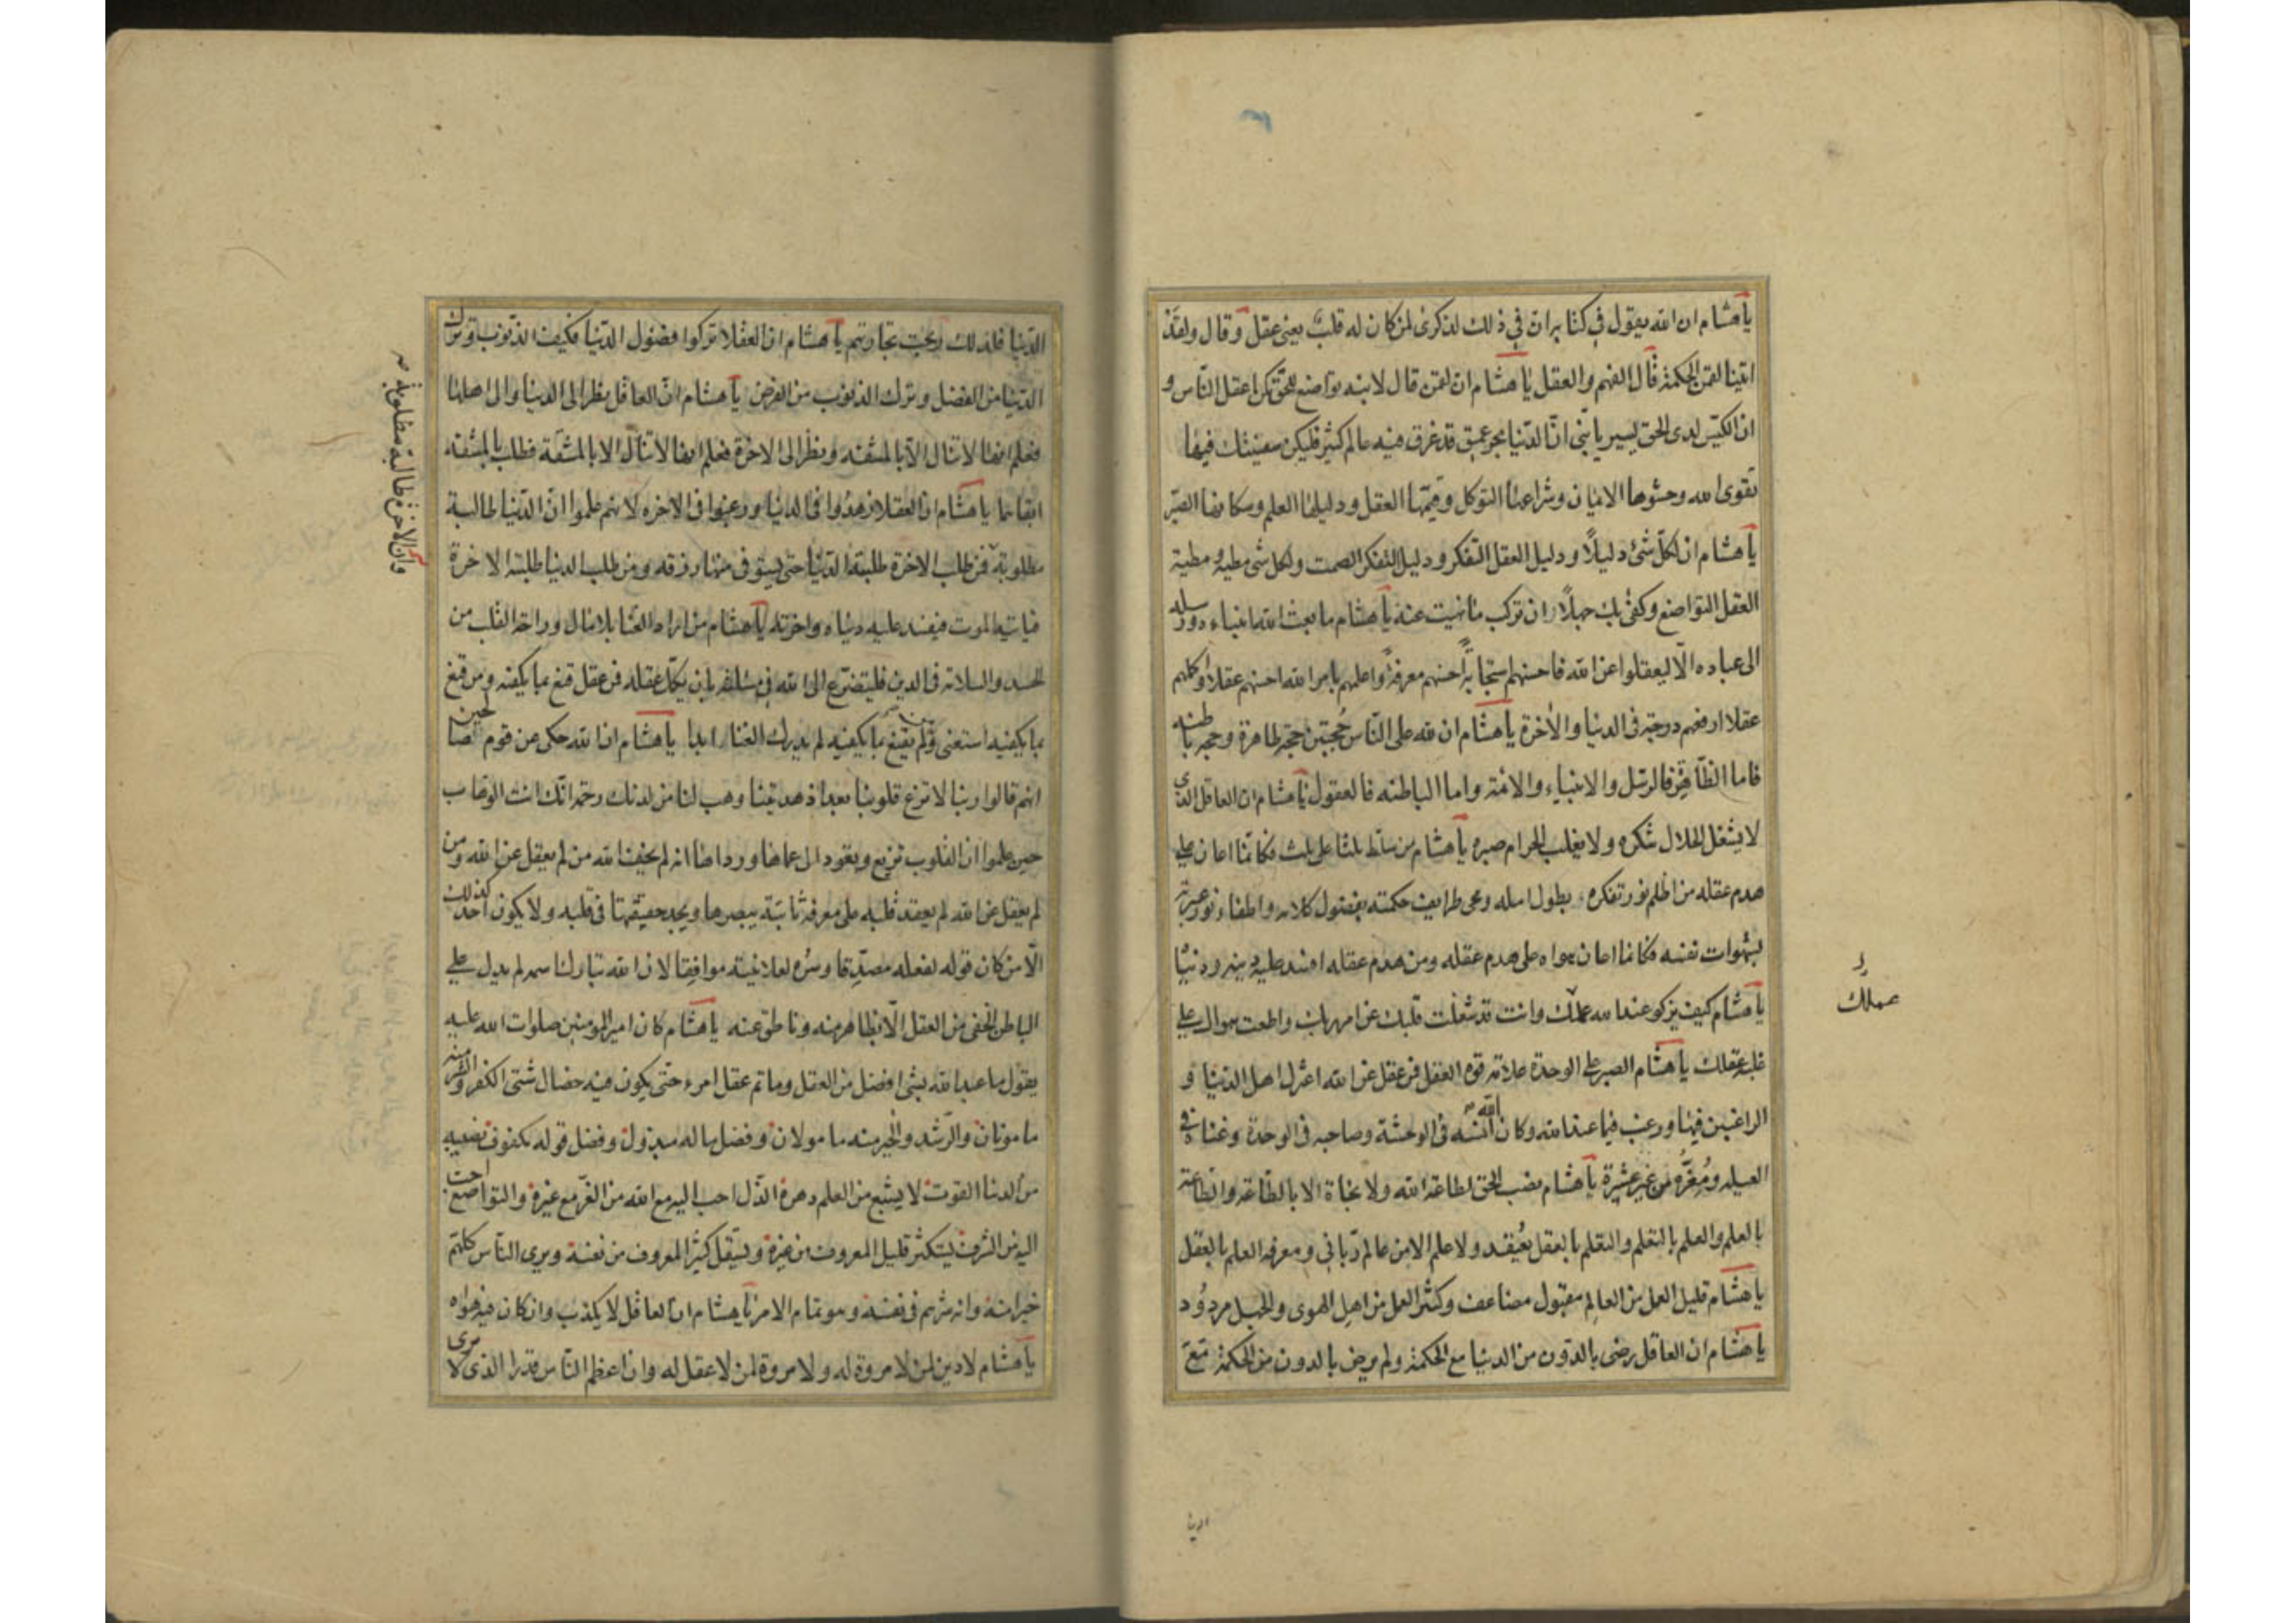 يا هشام ان الله يقول في كتابه ان في ذلك لذكرى لمن كان له قلب يعنى عقل وقال ولقد
اتينا لقمن الحكمة قال الفهم والعقل يا هشام ان لقمن قال لابنه تواضع للحق تكن اعقل الناس و
ان الكيس لدى الحق يسير يا بنى ان الدنيا بحر عميق قد غرق فيه عالم كثير فليكن سفينتك فيها
تقوى الله وحشوها الايمان وشراعها التوكل وقيمها العقل ودليلها العلم وسكانها الصبر
يا هشام ان لكل شئ دليلاً ودليل العقل التفكر ودليل التفكر الصمت ولكل شئ مطية ومطية
العقل التواضع وكفى بك جهلاً ان تركب ما نهيت عنه يا هشام ما بعث الله انبياءه ورسله
الى عباده الا ليعقلوا عن الله فاحسنهم استجابة احسنهم معرفة واعلمهم بامر الله احسنهم عقلا واكملهم
عقلا ارفعهم درجة فى الدنيا والاخرة يا هشام ان لله على الناس حُجتين حجة ظاهرة وحجة باطنه
فاما الظاهرة فالرسل والانبياء والائمة واما الباطنه فالعقول يا هشام ان العاقل الذى
لا يشغل الحلال شكره ولا يغلب الحرام صبره يا هشام من سلط ثلثا على ثلث فكانما اعان على
هدم عقله من اظلم نور تفكره بطول امله ومحى طرايف حكمته بفضول كلامه واطفاء نور عبرته
بشهوات نفسه فكانما اعان هواه على هدم عقله ومن هدم عقله افسد عليه دينه ودنياه
يا هشام كيف يزكو عند الله عملك وانت قد شغلت قلبك عن امر ربك واطعت هواك على
عملك
غلبة عقلك يا هشام الصبر على الوحدة علامة قوة العقل فمن عقل عن الله اعتزل اهل الدنيا و
الراغبين فيها ورغب فيما عند الله وكان الله انسه فى الوحشة وصاحبه فى الوحدة وغناه فى
العيلة ومُعِزُّه من غير عشيرة يا هشام نصب الحق لطاعة الله ولا نجاة الا بالطاعة والطاعة
بالعلم والعلم بالتعلم والتعلم بالعقل يُعتقد ولا علم الا من عالم ربانى ومعرفة العلم بالعقل
يا هشام قليل العمل من العالم مقبول مضاعف وكثير العمل من اهل الهوى والجهل مردُود
يا هشام ان العاقل رضى بالدون من الدنيا مع الحكمة ولم يرض بالدون من الحكمة مع
الدنيا
الدنيا فلذلك ربحت تجارتهم يا هشام ان العقلا تركوا فضول الدنيا فكيف الذنوب وترك
الدنيا من الفضل وترك الذنوب من الفرض يا هشام ان العاقل نظر الى الدنيا والى اهلها
فعلم انها لا تنال الا بالمشقه ونظر الى الاخرة فعلم انها لا تنال الا بالمشقة فطلب بالمشقه
ابقاهما يا هشام ان العقلا زهدوا فى الدنيا ورغبوا فى الاخره لانهم علموا ان الدنيا طالبة
مطلوبة فمن طلب الاخرة طلبته الدنيا حتى يستوفى منها رزقه ومن طلب الدنيا طلبته الاخرة
وان الاخرة طالبة مطلوبة صح
فياتيه الموت فيفسد عليه دنياه واخرته يا هشام من اراد الغنا بلا مال وراحة القلب من
الحسد والسلامة فى الدين فليتضرع الى الله فى مسئلته بان يكمل عقله فمن عقل قنع بما يكفيه ومن قنع
بما يكفيه استغنى ومن لم يقنع بما يكفيه لم يدرك الغنا ابدا يا هشام ان الله حكى عن قوم صالحين
انهم قالوا ربنا لا تزغ قلوبنا بعد اذ هديتنا وهب لنا من لدنك رحمة انك انت الوهاب
حين علموا ان القلوب تزيغ وتعود الى عماها ورداها انه لم يخف الله من لم يعقل عن الله ومن
لم يعقل عن الله لم يعقد قلبه على معرفة ثابتة يبصرها ويجد حقيقتها فى قلبه ولا يكون احد كذلك
الا من كان قوله لفعله مصدقا وسره لعلانيته موافقا لان الله تبارك اسمه لم يدل على
الباطن الخفى من العقل الا بظاهر منه وناطق عنه يا هشام كان امير المومنين صلوات الله عليه
يقول ما عبد الله بشئ افضل من العقل وما تم عقل امرء حتى يكون فيه خصال شتى الكفر والشر منه
مامونان والرشد والخير منه مامولان وفضل ماله مبذول وفضل قوله مكفوف نصيبه
من الدنيا القوت لا يشبع من العلم دهره الذل احب اليه مع الله من العز مع غيره والتواضع احب
اليه من الشرف يستكثر قليل المعروف من غيره ويستقل كثير المعروف من نفسه ويرى الناس كلهم
خيرا منه وانه شرهم فى نفسه وهو تمام الامر يا هشام ان العاقل لا يكذب وان كان فيه هواه
يا هشام لا دين لمن لا مروة له ولا مروة لمن لا عقل له وان اعظم الناس قدرا الذى لا يرى